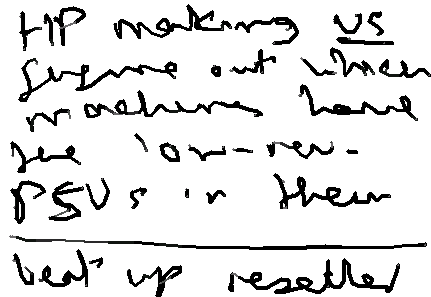 HP making us
figure out which
machines have
the 'low-rev-
PSUs in them
beat up reseller